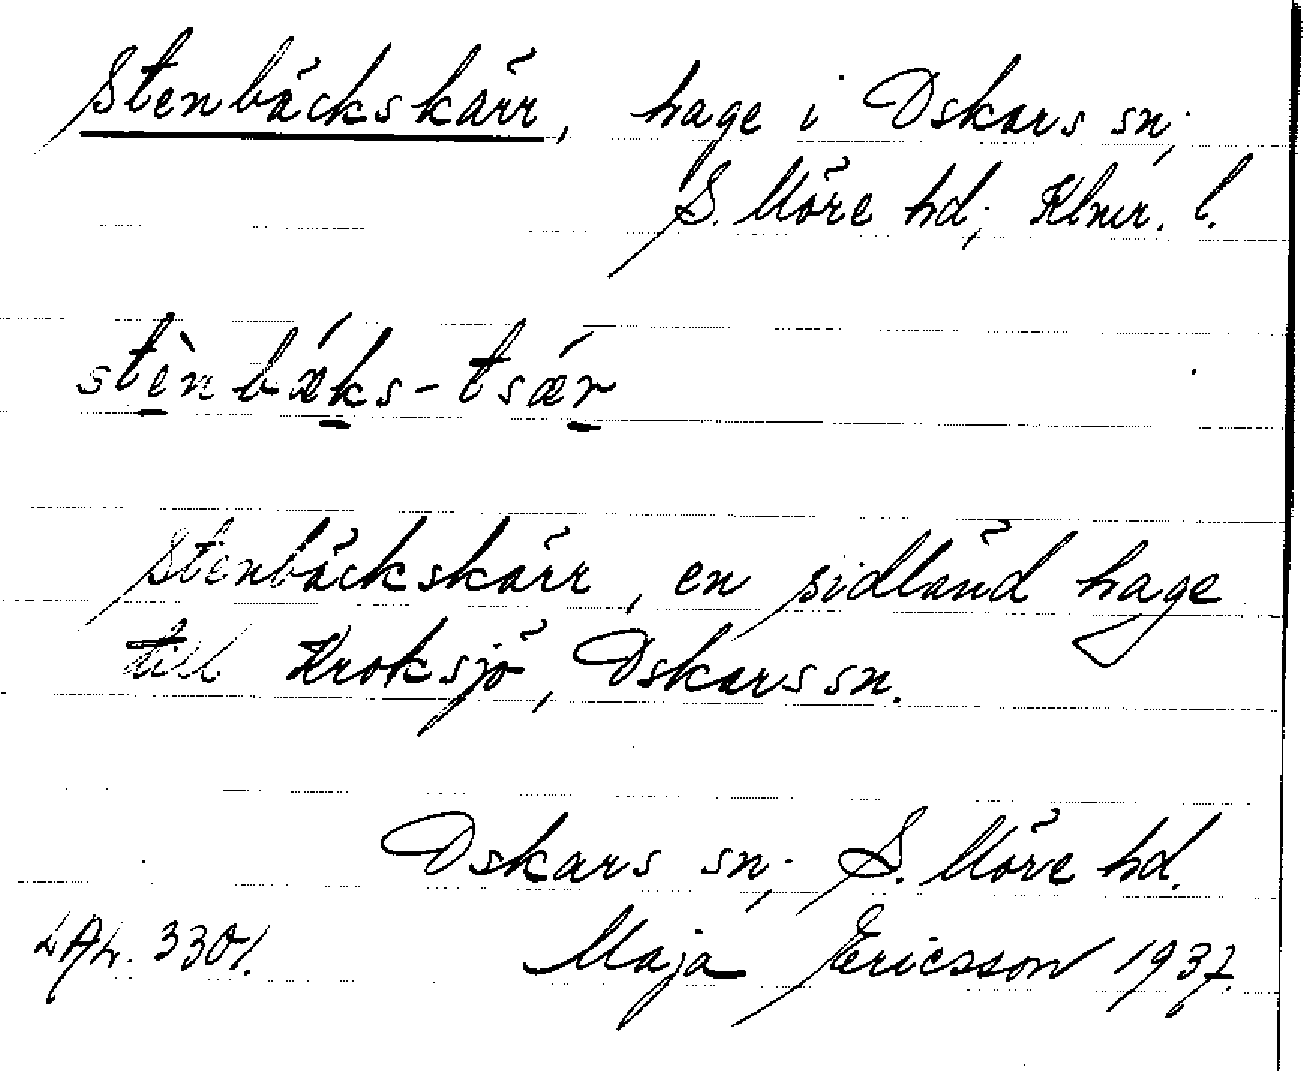 Stenbäckskärr, hage i Oskars sn;
S. Möre hd; Klmr. l.
stènbǽks-tsǽr
Stenbäckskärr, en sidländ hage
till Kroksjö, Oskars sn.
Oskars sn; S. Möre hd.
LAL. 3301. Maja Ericsson 1937.